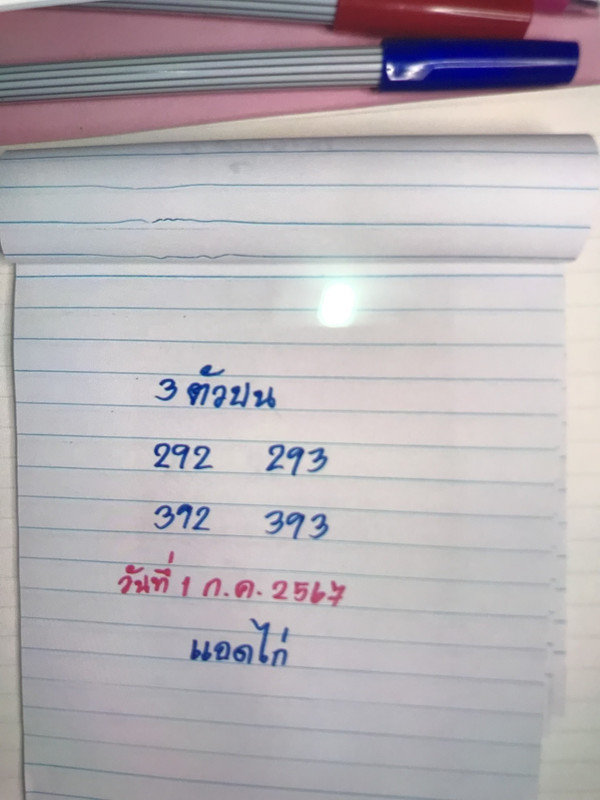 3 ตัวบน
292 293
392 393
วันที่ 1 ก.ค. 2567
แอดไก่